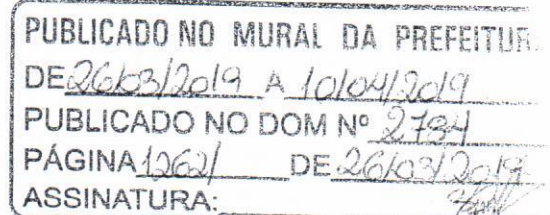 PUBLICADO NO MURAL DA PREFEITUR
DE 26/03/2019 A 10/04/2019
PUBLICADO NO DOM Nº 2734
PÁGINA 1262/ DE 26/03/2019
ASSINATURA: